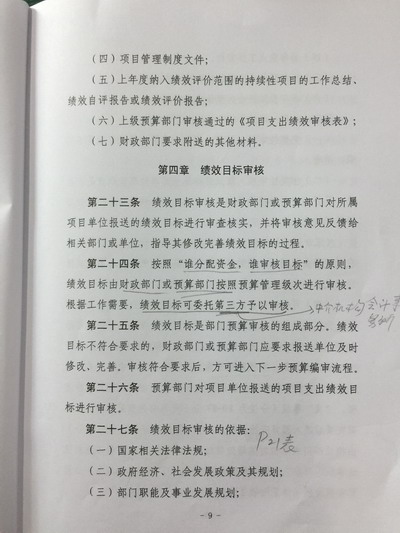 （四）项目管理制度文件；
（五）上年度纳入绩效评价范围的持续性项目的工作总结、
绩效自评报告或绩效评价报告；
（六）上级预算部门审核通过的《项目支出绩效审核表》；
（七）财政部门要求附送的其他材料。
第四章 绩效目标审核
第二十三条 绩效目标审核是财政部门或预算部门对所属
项目单位报送的绩效目标进行审查核实，并将审核意见反馈给
相关部门或单位，指导其修改完善绩效目标的过程。
第二十四条 按照“谁分配资金，谁审核目标”的原则，
绩效目标由财政部门或预算部门按照预算管理级次进行审核。
根据工作需要，绩效目标可委托第三方予以审核。
第二十五条 绩效目标是部门预算审核的组成部分。绩效
目标不符合要求的，财政部门或预算部门应要求报送单位及时
修改、完善。审核符合要求后，方可进入下一步预算编审流程。
第二十六条 预算部门对项目单位报送的项目支出绩效目
标进行审核。
第二十七条 绩效目标审核的依据：
P21表
（一）国家相关法律法规；
（二）政府经济、社会发展政策及其规划；
（三）部门职能及事业发展规划；
- 9 -